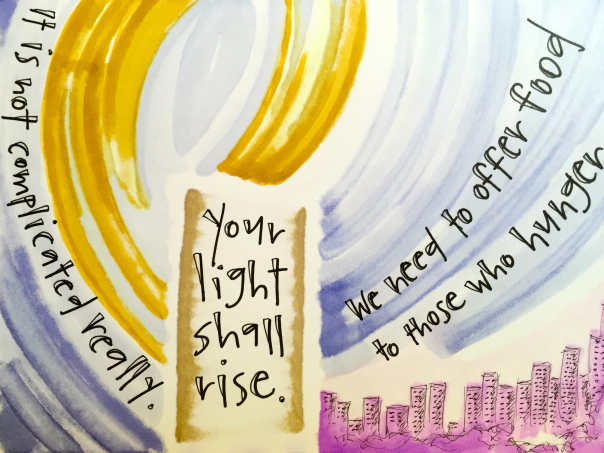 It is not complicated really.
Your
light
shall
rise.
We need to offer food
to those who hunger